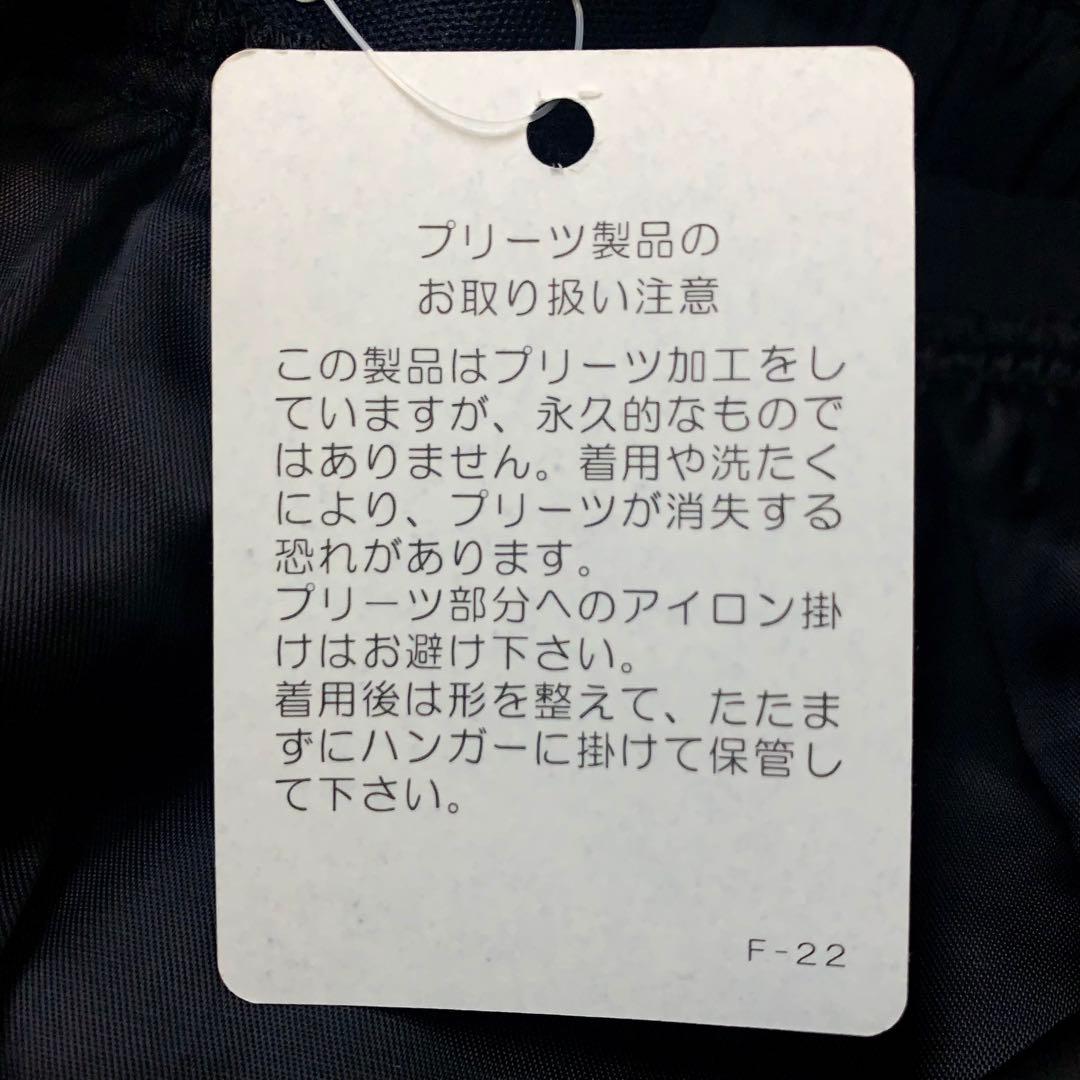 プリーツ製品の
お取り扱い注意
この製品はプリーツ加工をし
ていますが、永久的なもので
はありません。着用や洗たく
により、プリーツが消失する
恐れがあります。
プリーツ部分へのアイロン掛
けはお避け下さい。
着用後は形を整えて、たたま
ずにハンガーに掛けて保管し
て下さい。
F-22